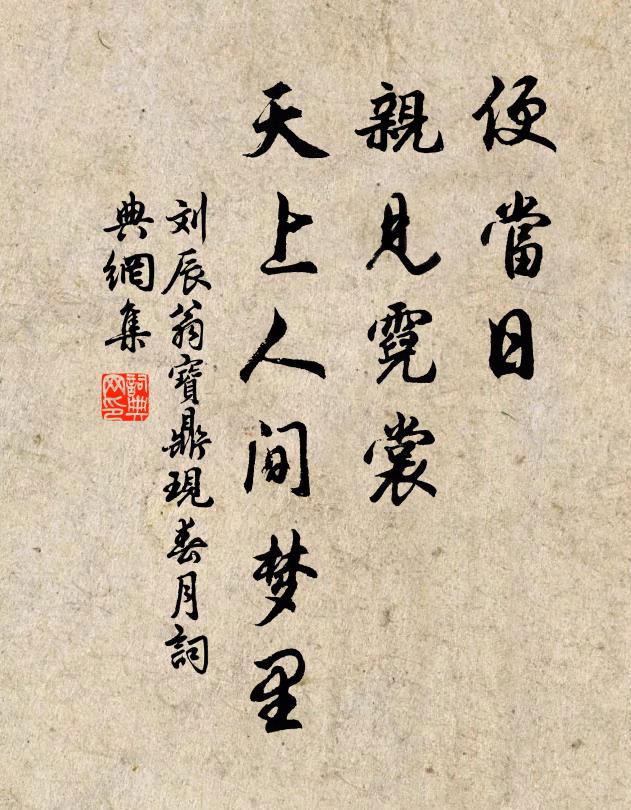 便當日
親見霓裳
天上人间梦里
刘辰翁寶鼎現春月詞
典網集
詞典網印